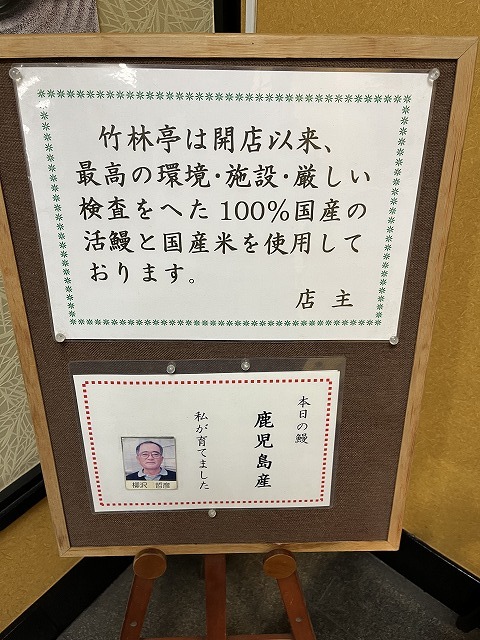 竹林亭は開店以来、
最高の環境・施設・厳しい
検査をへた100%国産の
活鰻と国産米を使用して
おります。
店主
本日の鰻
鹿児島産
私が育てました
柳沢 哲彦